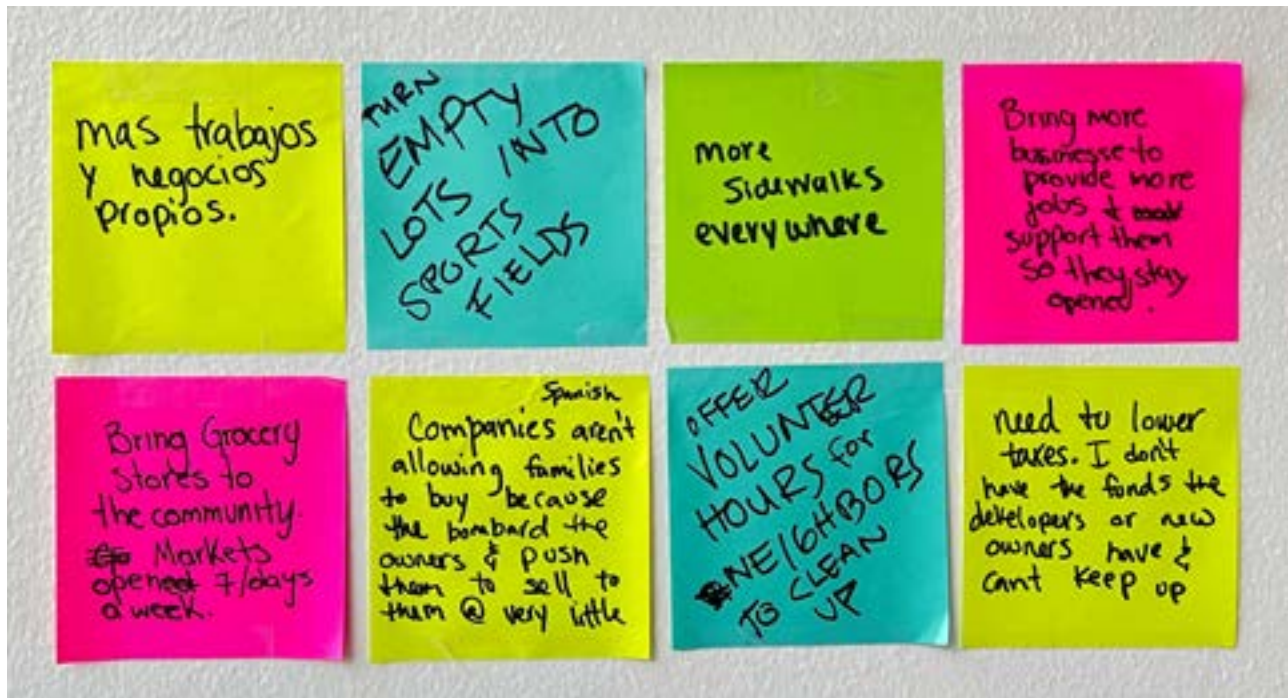 mas trabajos
y negocios
propios.
TURN
EMPTY
LOTS INTO
SPORTS
FIELDS
more
Sidewalks
everywhere
Bring more
businesse to
provide more
jobs &
support them
so they stay
opened.
Bring Grocery
Stores to
the community.
Markets
opened 7/days
a week.
Spanish
Companies aren't
allowing families
to buy because
the bombard the
owners & push
them to sell to
them @ very little
OFFER
VOLUNTEER
HOURS for
NEIGHBORS
TO CLEAN
UP
need to lower
taxes. I don't
have the funds the
developers or new
owners have &
cant keep up